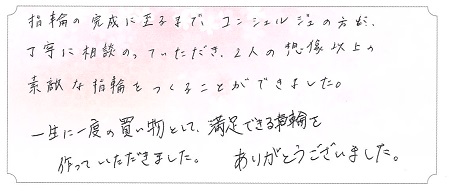 指輪の完成に至るまで、コンシェルジュの方が、
丁寧に相談のっていただき、2人の想像以上の
素敵な指輪をつくることができました。
一生に一度の買い物として、満足できる指輪を
作っていただきました。 ありがとうございました。